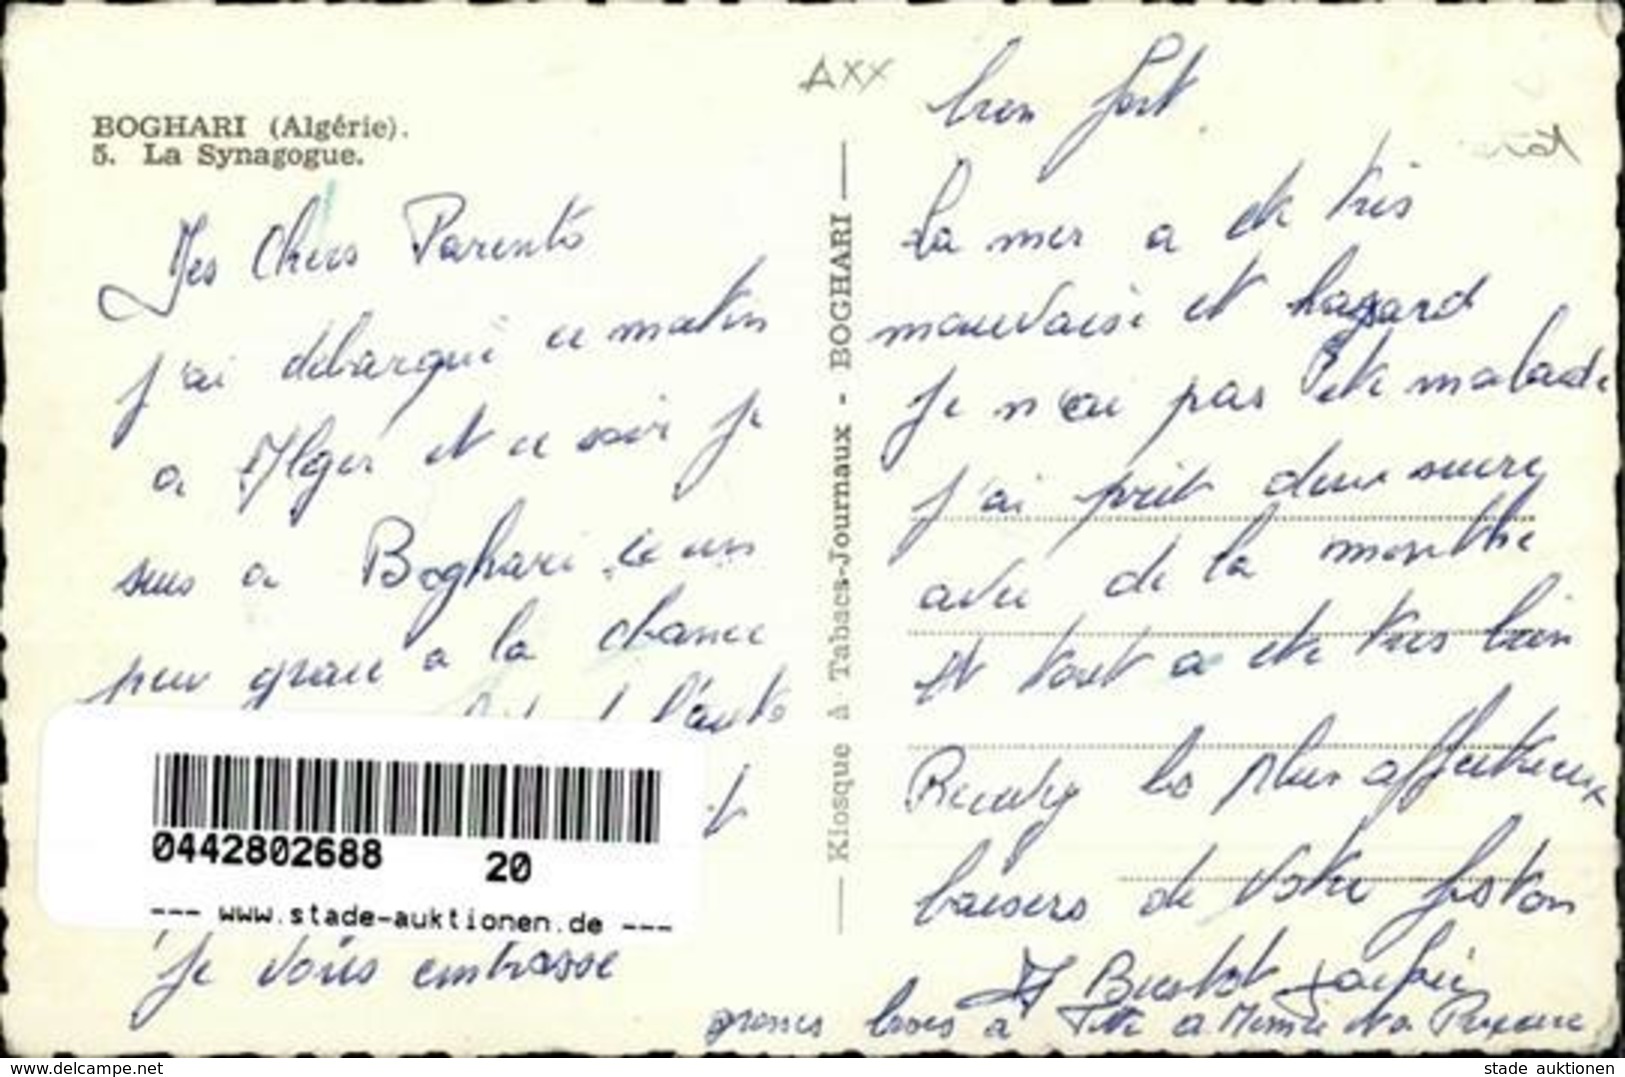 BOGHARI (Algérie).
5. La Synagogue.
Mes Chers Parents
j'ai debarqué ce matin
a Alger et ce soir je
suis a Boghari ce um
peu grace a la chance
l'auto
je vous embrasse
0442802688 20
--- www.stade-auktionen.de ---
Kiosque à Tabacs-Journaux - BOGHARI
AXX
bien fort.
La mer a ete très
mauvaise et hasard
je n'ai pas été malade
j'ai prit deux sucre
avec de la menthe
et tout a ete tres bien
Recevez les plus affectueux
baisers de votre fiston
grosses bises a
www.delcampe.net
stade auktionen